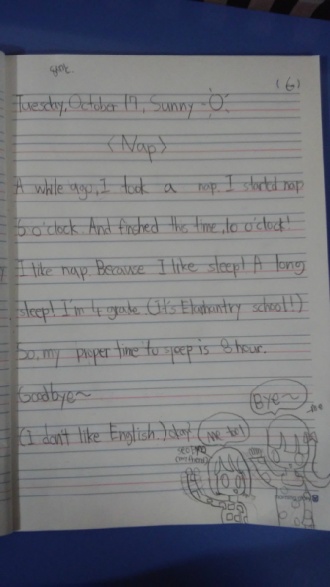 (6)
Tuesday, October 17, Sunny
<Nap>
A while ago, I took a nap. I started nap
5 o'clock. And finshed the time, 10 o'clock!
I like nap. Because I like sleep! A long
sleep! I'm 4 grade (It's Elephantry school!!)
So, my proper time to sleep is 8 hour.
Goodbye~
(I don't like English.)
Bye~
me too!